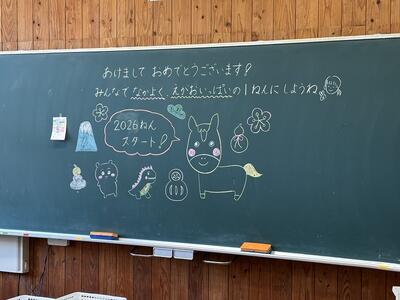 あけまして おめでとうございます!
みんなで なかよく、えがおいっぱいの 1 ねんに しようね
2026ねん
スタート!